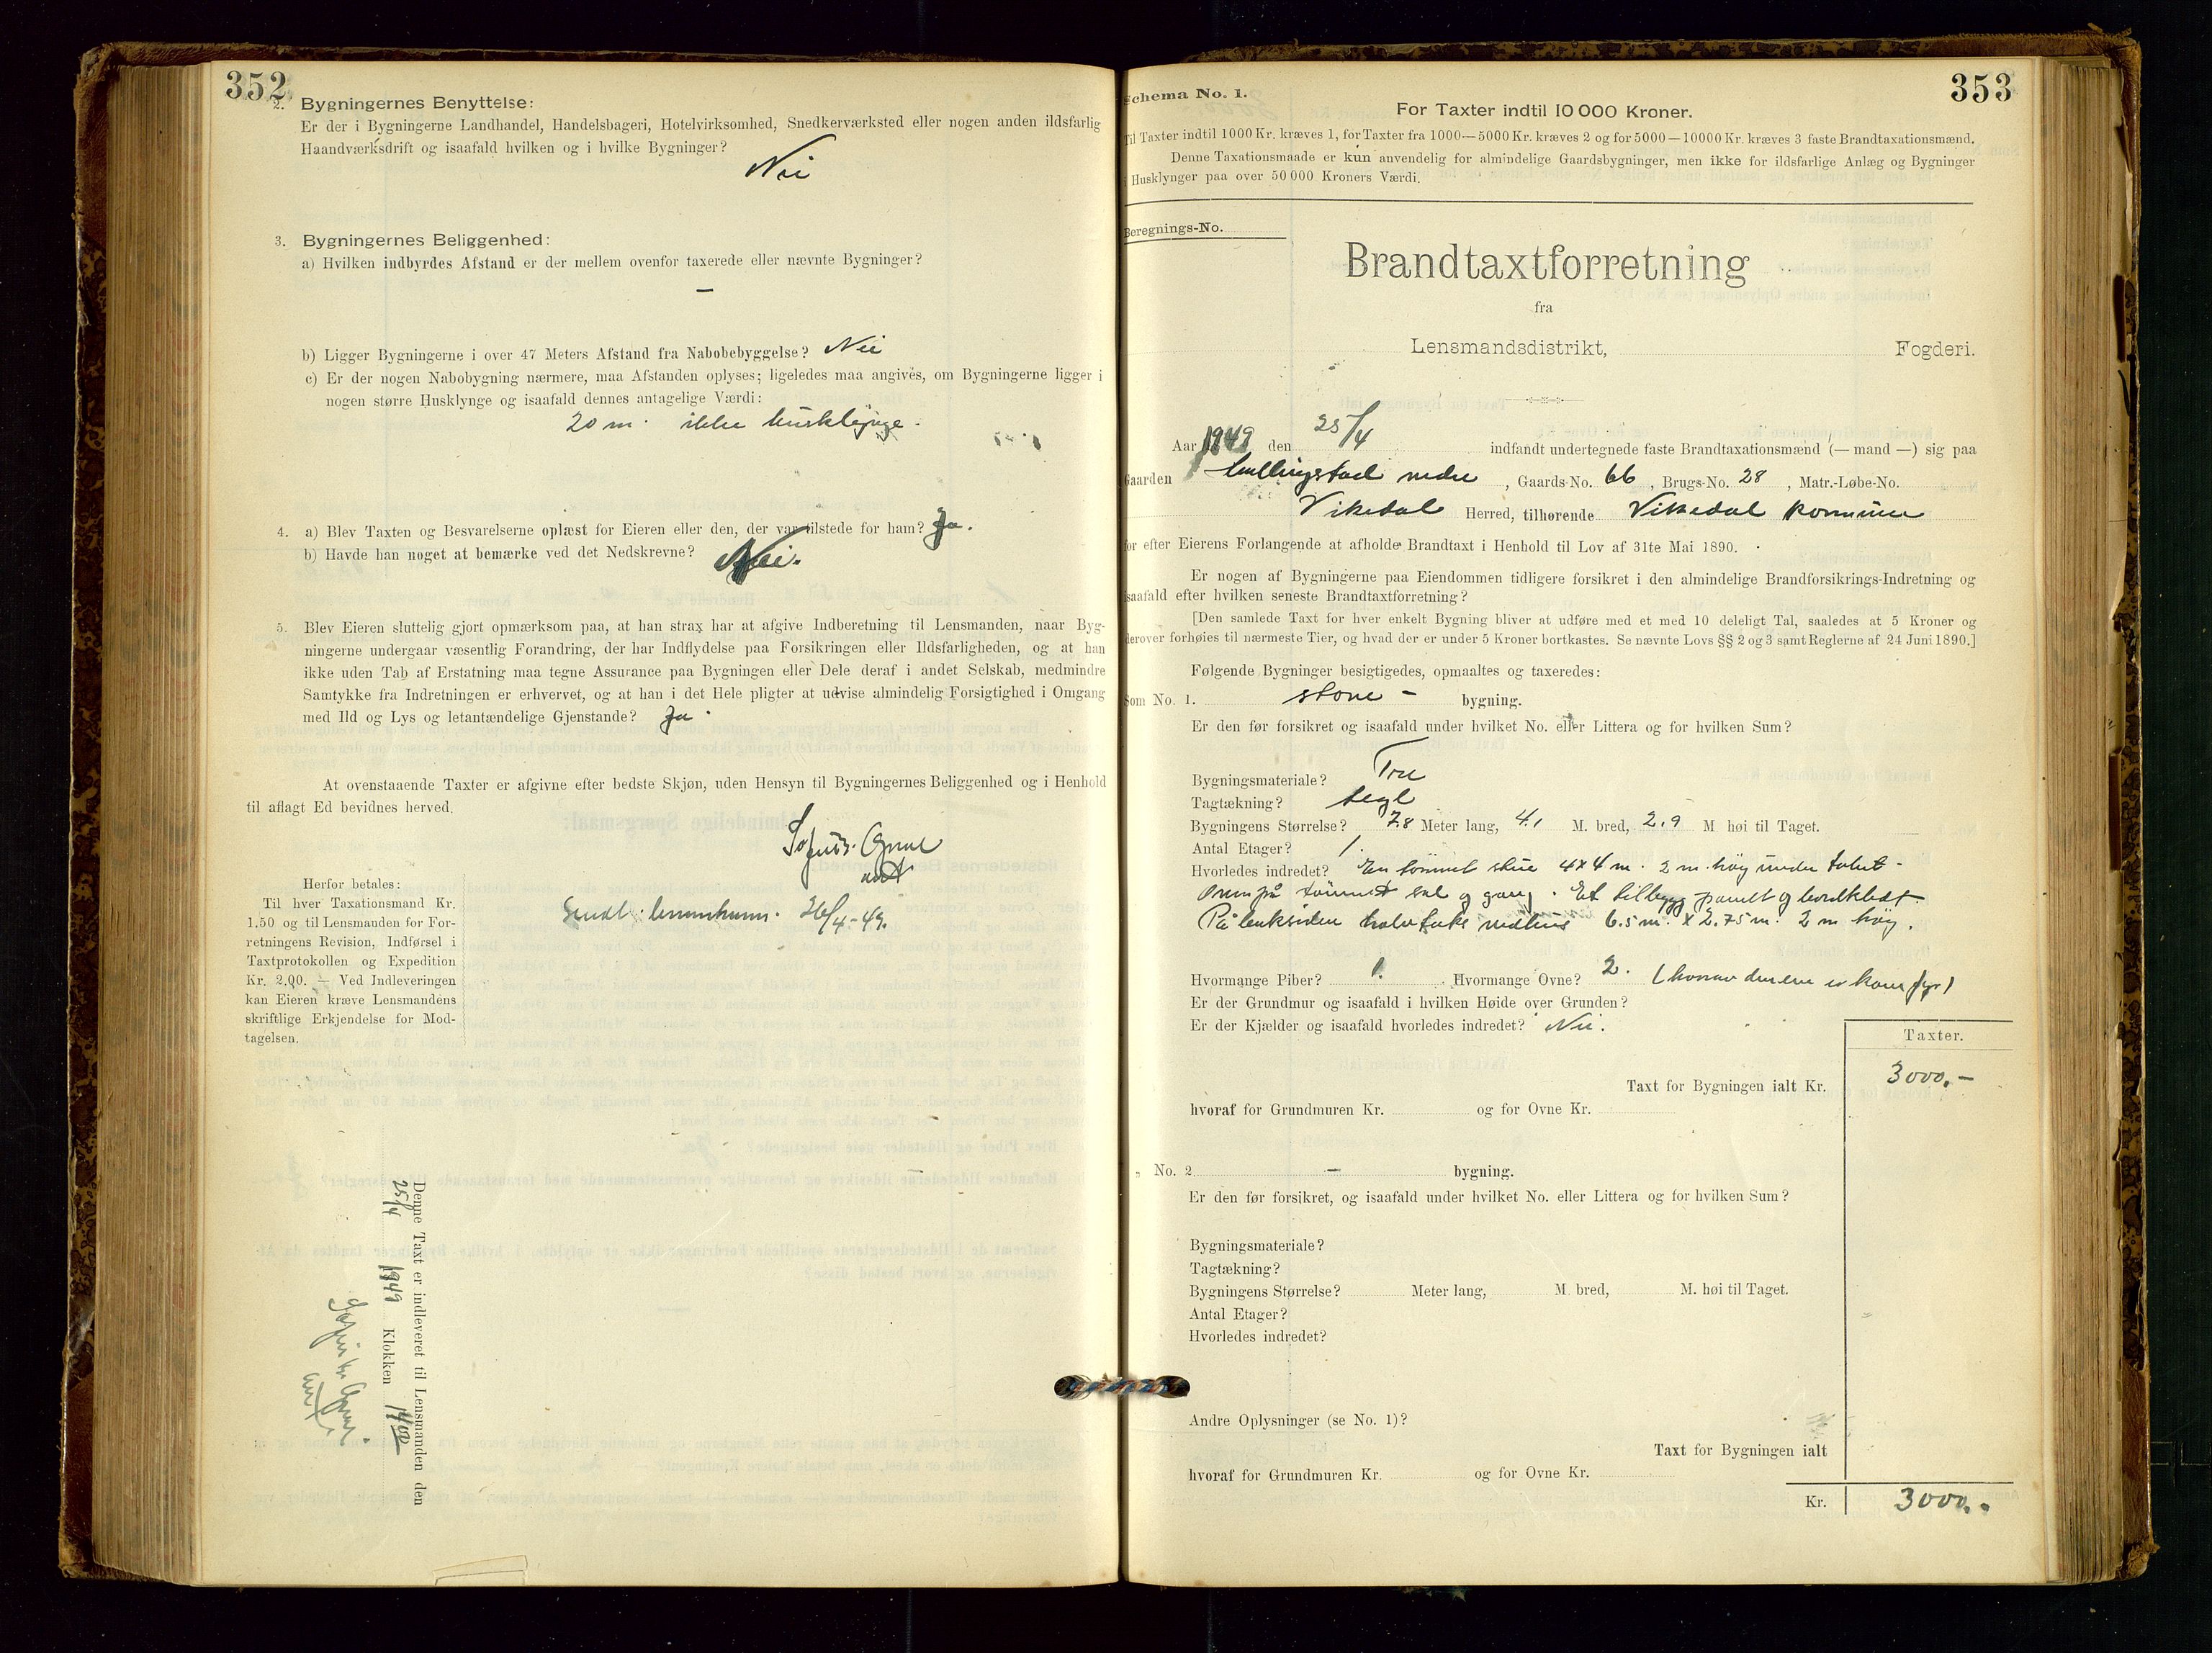 352
2. Bygningernes Benyttelse:
Er der i Bygningerne Landhandel, Handelsbageri, Hotelvirksomhed, Snedkerværksted eller nogen anden ildsfarlig
Haandværksdrift og isaafald hvilken og i hvilke Bygninger?
Nei
3. Bygningernes Beliggenhed:
a) Hvilken indbyrdes Afstand er der mellem ovenfor taxerede eller nævnte Bygninger?
—
b) Ligger Bygningerne i over 47 Meters Afstand fra Nabobebyggelse? Nei
c) Er der nogen Nabobygning nærmere, maa Afstanden oplyses; ligeledes maa angives, om Bygningerne ligger i
nogen større Husklynge og isaafald dennes antagelige Værdi:
20 m. ikke husklynge.
4. a) Blev Taxten og Besvarelserne oplæst for Eieren eller den, der var tilstede for ham? Ja.
b) Havde han noget at bemærke ved det Nedskrevne? Nei.
5. Blev Eieren sluttelig gjort opmærksom paa, at han strax har at afgive Indberetning til Lensmanden, naar Byg-
ningerne undergaar væsentlig Forandring, der har Indflydelse paa Forsikringen eller Ildsfarligheden, og at han
ikke uden Tab af Erstatning maa tegne Assurance paa Bygningen eller Dele deraf i andet Selskab, medmindre
Samtykke fra Indretningen er erhvervet, og at han i det Hele pligter at udvise almindelig Forsigtighed i Omgang
med Ild og Lys og letantændelige Gjenstande? Ja.
At ovenstaaende Taxter er afgivne efter bedste Skjøn, uden Hensyn til Bygningernes Beliggenhed og i Henhold
til aflagt Ed bevidnes herved.
Herfor betales:
Til hver Taxationsmand Kr.
1.50 og til Lensmanden for For-
retningens Revision, Indførsel i
Taxtprotokollen og Expedition
Kr. 2.00. — Ved Indleveringen
kan Eieren kræve Lensmandens
skriftlige Erkjendelse for Mod-
tagelsen.
Sendt 26/4-49.
Denne Taxt er indleveret til Lensmanden den
25/4 1949 Klokken 1400
353
Schema No. 1.
For Taxter indtil 10 000 Kroner.
Til Taxter indtil 1000 Kr. kræves 1, for Taxter fra 1000—5000 Kr. kræves 2 og for 5000—10000 Kr. kræves 3 faste Brandtaxationsmænd.
Denne Taxationsmaade er kun anvendelig for almindelige Gaardsbygninger, men ikke for ildsfarlige Anlæg og Bygninger
i Husklynger paa over 50 000 Kroners Værdi.
Beregnings-No.
Brandtaxtforretning
fra
Lensmandsdistrikt, Fogderi.
Aar 1949 den 25/4 indfandt undertegnede faste Brandtaxationsmænd (— mand —) sig paa
Gaarden nedre, Gaards-No. 66, Brugs-No. 28, Matr.-Løbe-No.
Vikedal Herred, tilhørende Vikedal kommune
for efter Eierens Forlangende at afholde Brandtaxt i Henhold til Lov af 31te Mai 1890.
Er nogen af Bygningerne paa Eiendommen tidligere forsikret i den almindelige Brandforsikrings-Indretning og
isaafald efter hvilken seneste Brandtaxtforretning?
[Den samlede Taxt for hver enkelt Bygning bliver at udføre med et med 10 deleligt Tal, saaledes at 5 Kroner og
derover forhøies til nærmeste Tier, og hvad der er under 5 Kroner bortkastes. Se nævnte Lovs §§ 2 og 3 samt Reglerne af 24 Juni 1890.]
Følgende Bygninger besigtigedes, opmaaltes og taxeredes:
Som No. 1. stove - bygning.
Er den før forsikret og isaafald under hvilket No. eller Littera og for hvilken Sum?
Bygningsmateriale? Tre
Tagtækning? tegl
Bygningens Størrelse? 7.8 Meter lang, 4.1 M. bred, 2.9 M. høi til Taget.
Antal Etager? 1.
Hvorledes indredet? En tømret stue 4x4 m. 2 m. høy under
tømret og gang. Et tilbygg panelt og bordkledt
På 6.5 m. x 2.75 m. 2 m høy.
Hvormange Piber? 1. Hvormange Ovne? 2. (hvorav den ene er komfyr)
Er der Grundmur og isaafald i hvilken Høide over Grunden?
Er der Kjælder og isaafald hvorledes indredet? Nei.
Taxter.
Taxt for Bygningen ialt Kr. 3000.-
hvoraf for Grundmuren Kr. og for Ovne Kr.
„ No. 2. — bygning.
Er den før forsikret, og isaafald under hvilket No. eller Littera og for hvilken Sum?
Bygningsmateriale?
Tagtækning?
Bygningens Størrelse? Meter lang, M. bred, M. høi til Taget.
Antal Etager?
Hvorledes indredet?
Andre Oplysninger (se No. 1)?
Taxt for Bygningen ialt
hvoraf for Grundmuren Kr. og for Ovne Kr.
Kr. 3000.-